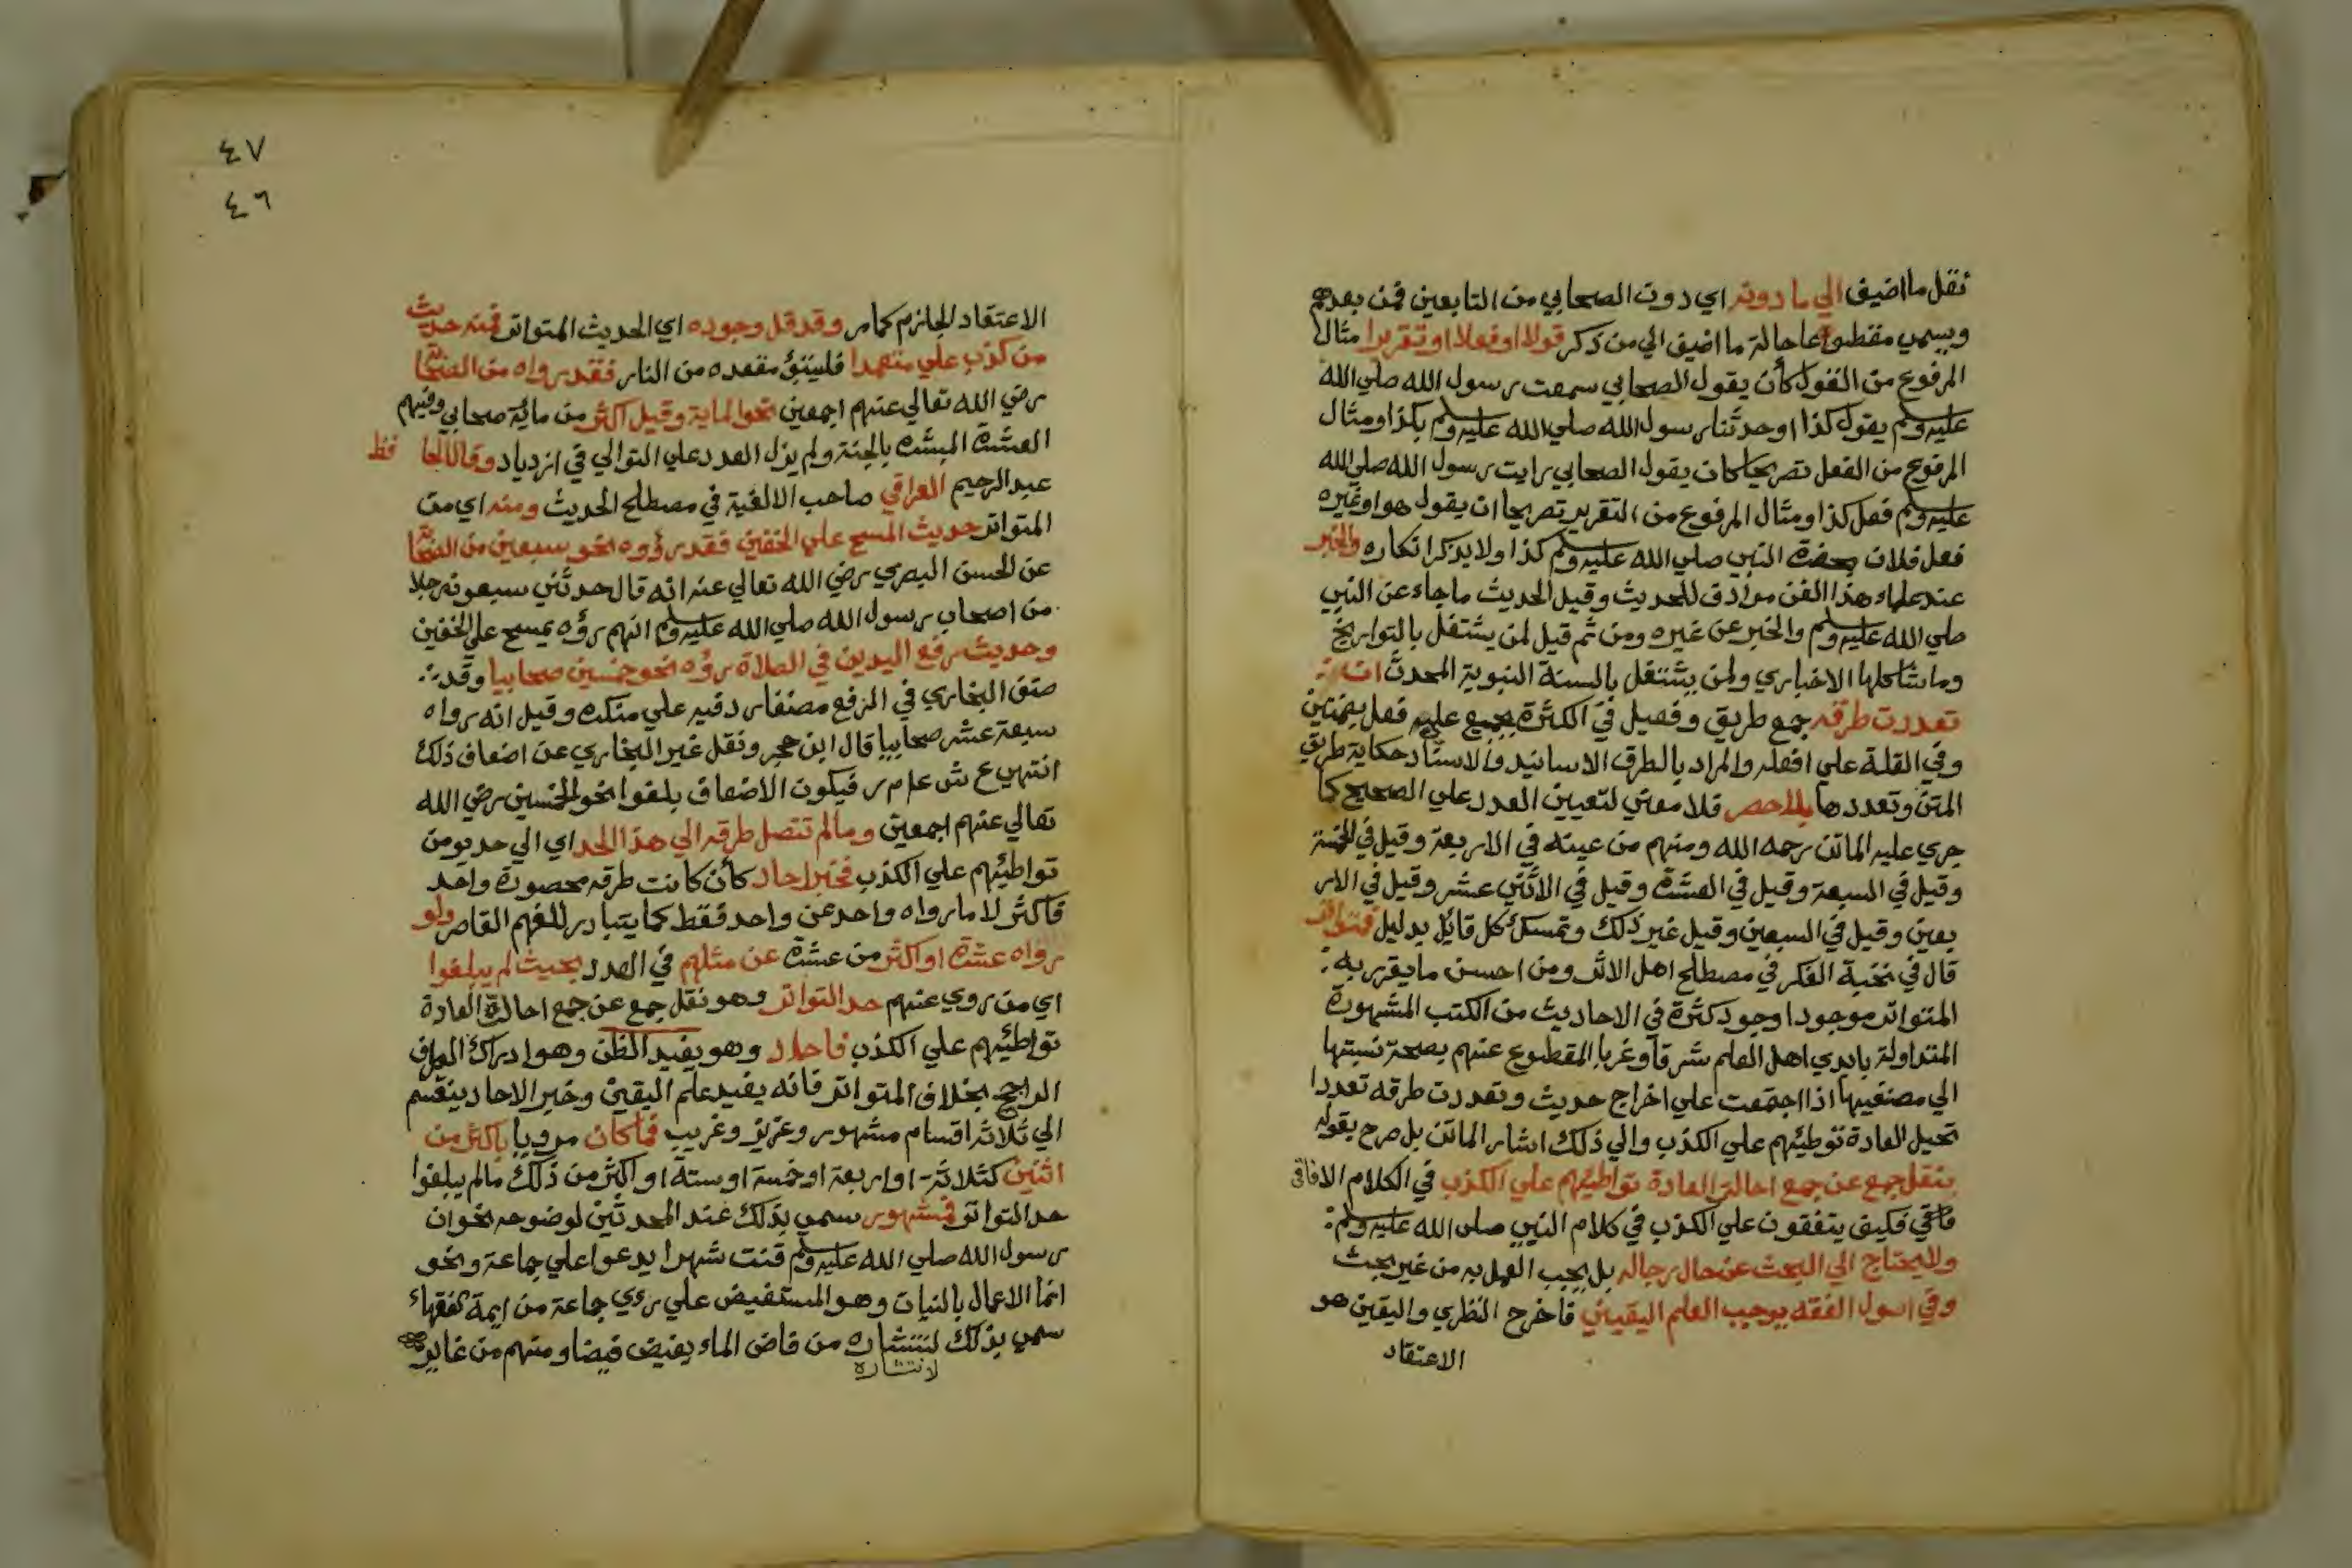 نقل ما اضيف الي ما دونه اي دون الصحابي من التابعين فمن بعدهم
ويسمي مقطوعا حالة ما اضيف الي من ذكر قولا او فعلا او تقريرا مثال
المرفوع من القول كأن يقول الصحابي سمعت رسول الله صلي الله
عليه وسلم يقول كذا او حدثنا رسول الله صلي الله عليه وسلم بكذا ومثال
المرفوع من الفعل تصريحا كان يقول الصحابي رايت رسول الله صلي الله
عليه وسلم فعل كذا ومثال المرفوع من التقرير تصريحا ان يقول هو او غيره
فعل فلان بحضرة النبي صلي الله عليه وسلم كذا ولا يذكر انكاره والخبر
عند علماء هذا الفن مرادف للحديث وقيل الحديث ما جاء عن النبي
صلي الله عليه وسلم والخبر عن غيره ومن ثم قيل لمن يشتغل بالتواريخ
وما شاكلها الاخباري ولمن يشتغل بالسنة النبوية المحدث ان
تعددت طرقه جمع طريق وفعيل في الكثرة يجمع علي فعل بضمتين
وفي القلة علي افعله والمراد بالطرق الاسانيد والاسناد حكاية طريق
المتن وتعددها بلا حصر فلا معني لتعيين العدد علي الصحيح كما
جري عليه الماتن رحمه الله ومنهم من عينه في الاربعة وقيل في الخمسة
وقيل في السبعة وقيل في العشرة وقيل في الاثني عشر وقيل في الار
بعين وقيل في السبعين وقيل غير ذلك وتمسك كل قائل بدليل فمتواتر
قال في نخبة الفكر في مصطلح اهل الاثر ومن احسن ما يقرر به
المتواتر موجودا وجود كثرة في الاحاديث من الكتب المشهورة
المتداولة بايدي اهل العلم شرقا وغربا المقطوع عنهم بصحة نسبتها
الي مصنفيها اذا اجتمعت علي اخراج حديث وتعددت طرقه تعددا
تحيل العادة توطئهم علي الكذب والي ذلك اشار الماتن بل صرح بقوله
بنقل جمع عن جمع احالة العادة تواطئهم علي الكذب في الكلام الافاقي
فكيف يتفقون علي الكذب في كلام النبي صلي الله عليه وسلم
ولا يحتاج الي البحث عن حال رجاله بل يجب العمل به من غير بحث
وفي اسول الفقه يوجب العلم اليقيني فاخرج النظري واليقين هو
الاعتقاد
٤٧
٤٦
الاعتقاد الجازم كما مر وقد قل وجوده اي الحديث المتواتر فمنه حديث
من كذب علي متعمدا فليتبؤ مقعده من النار فقد رواه من الصحا
رضي الله تعالي عنهم اجمعين نحو الماية وقيل اكثر من مائة صحابي وفيهم
العشرة المبشرة بالجنة ولم يزل العدد علي التوالي في ازدياد وقال الحا فظ
عبد الرحيم العراقي صاحب الالفية في مصطلح الحديث ومنه اي من
المتواتر حديث المسح علي الخفين فقد رووه نحو سبعين من الصحا
عن الحسن البصري رضي الله تعالي عنه انه قال حدثني سبعون رجلا
من اصحاب رسول الله صلي الله عليه وسلم انهم رؤه يمسح علي الخفين
وحديث رفع اليدين في الصلاة رؤه نحو خمسين صحابيا وقد
صنف البخاري في الرفع مصنفا رد فيه علي منكره وقيل انه رواه
سبعة عشر صحابيا قال ابن حجر ونقل غير البخاري عن اضعاف ذلك
انتهي ع ش علي م ر فيكون الاضعاف بلغوا نحو الخمسين رضي الله
تعالي عنهم اجمعين وما لم تتصل طرقه الي هذا الحد اي الي حد يومن
تواطئهم علي الكذب فخبر احاد كأن كانت طرقه محصورة واحد
فاكثر لا ما رواه واحد عن واحد فقط كما يتبادر للفهم القاصر ولو
رواه عشرة او اكثر من عشرة عن مثلهم في العدد بحيث لم يبلغوا
اي من روي عنهم حد التواتر وهو نقل جمع عن جمع احالة العادة
تواطئهم علي الكذب فاحاد وهو يفيد الظن وهو ادراك الطرف
الراجح بخلاف المتواتر فانه يفيد علم اليقين وخبر الاحاد ينقسم
الي ثلاثة اقسام مشهور وعزيز وغريب فما كان مرويا باكثر من
اثنين كثلاثة او اربعة او خمسة او ستة او اكثر من ذلك ما لم يبلغوا
حد التواتر فمشهور سمي بذلك عند المحدثين لوضوحه نحو ان
رسول الله صلي الله عليه وسلم قنت شهرا يدعوا علي جماعة ونحو
انما الاعمال بالنيات وهو المستفيض علي رءي جماعة من ايمة الفقهاء
سمي بذلك لنتشاره من فاض الماء يفيض فيضا ومنهم من غاير
لانتشاره